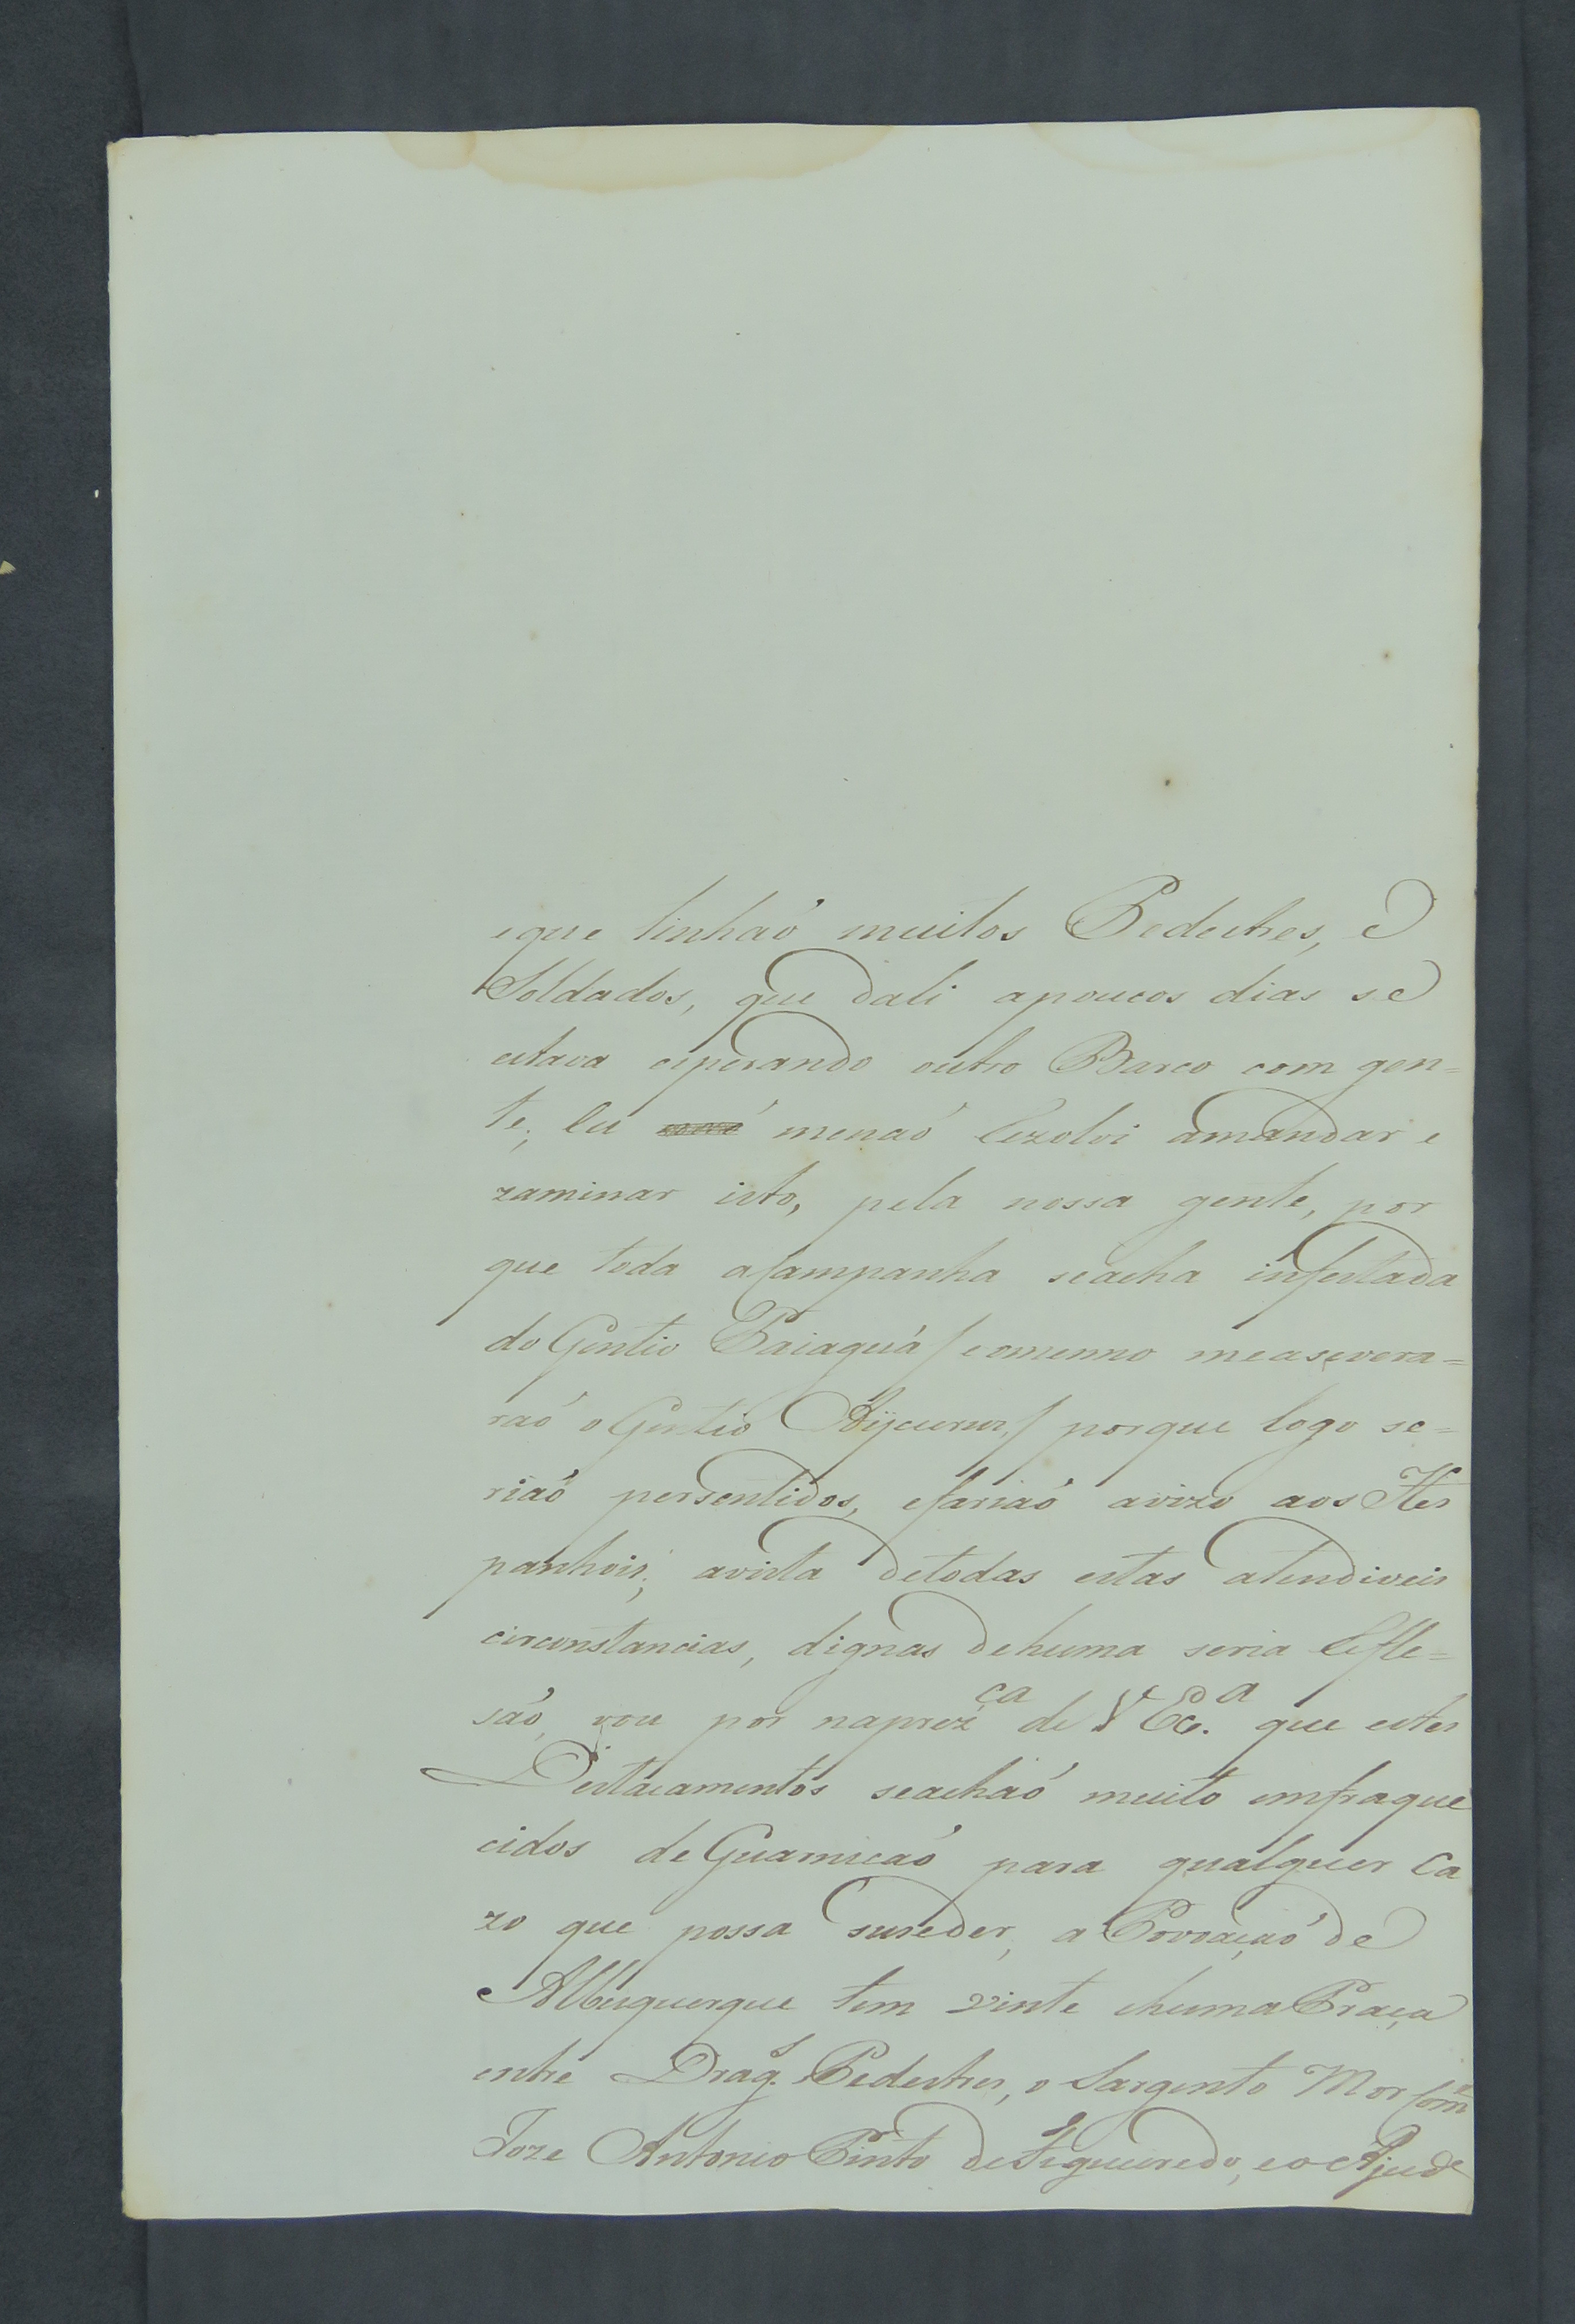 eque tinhaó muitos Pedestres, e
Soldados, que dali apoucos dias se
estava esperando outro Barco com gen=
te; Eu menaó Rezolvi amandar e
zaminar isto, pela nossa gente, por
que toda aCampanha seacha infestada
do Gentio Paiaguá / eomesmo measevera=
raó o Gentio Aÿcurus, / porque logo se=
riaó persentidos, efariaó avizo aos Hes
panhois; avista detodas estas atendiveis
circonstancias, dignas dehuma seria Refle=
saó, vou por naprezça de V Exa. que estes
Destacamentos seachaó muito emfraque
cidos de Guarnicaó para qualquer Ca
zo que possa suseder, a Povoaçaó de
Albuquerque tem vinte ehuma Praça
entre Drags. Pedestres, o Sargento Mor Comē
Joze Antonio Pinto deFigueiredo, eo Ajude